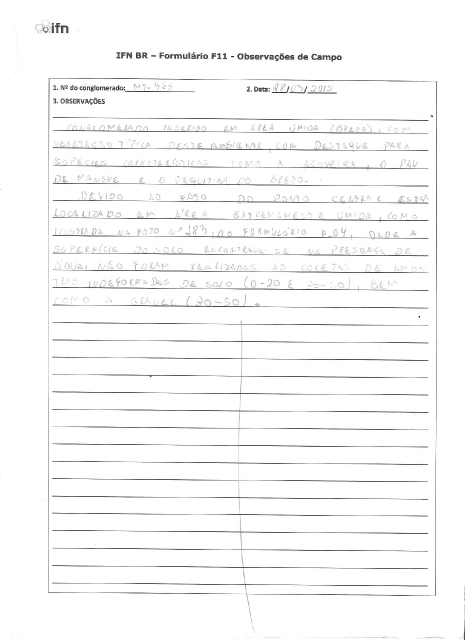 ifn
IFN BR – Formulário F11 - Observações de Campo
1. Nº do conglomerado: MT-565 2. Data: 28/03/2015
3. OBSERVAÇÕES
CONGLOMERADO INSERIDO EM ÁREA ÚMIDA (BREJO), COM
VEGETAÇÃO TÍPICA DESTE AMBIENTE, COM DESTAQUE PARA
ESPÉCIES CARACTERÍSTICAS COMO A O PAU
DE MANGUE E O DO BREJO.
DEVIDO AO FATO DO PONTO CENTRAL ESTAR
LOCALIZADO EM ÁREA EXTREMAMENTE ÚMIDA, COMO
ILUSTRADA NA FOTO Nº 287, DO FORMULÁRIO F.04, ONDE A
SUPERFÍCIE DO SOLO ENCONTRAVA-SE NA PRESENÇA DE
ÁGUA, NÃO FORAM REALIZADAS AS COLETAS DE AMOS-
TRAS INDEFORMADAS DE SOLO (0-20 E 30-50), BEM
COMO A GRANEL (30-50).